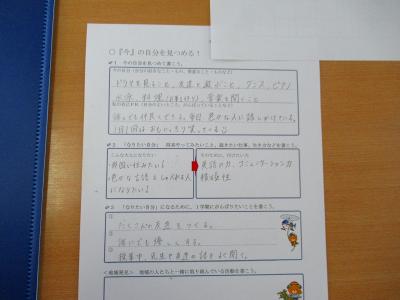 ○『今』の自分を見つめる！
1 今の自分を見つめて書こう。
今の自分（自分の好きなこと・もの、得意なこと・ものなど）
ドラマを見ること、友達と遊ぶこと、ダンス、ピアノ
水泳、料理 音楽を聞くこと
誰とでも仲良くできる。毎日、色々な人に話しかけている。
1日1回はおもいっきり笑っている
2 「なりたい自分」 将来やってみたいこと、就きたい仕事、生き方などを書こう。
こんな大人になりたい
外国に住みたい
色々な言語をしゃべれる人
になりたい
そのために、付けたい力
英語の力、コミュニケーション力
積極性
3 「なりたい自分」になるために、1学期にがんばりたいことを書こう。
① たくさんの友達をつくる。
② 誰にでも優しくする。
③ 授業中、先生や友達の話をよく聞く。
＜地域発見＞ 地域の人たちと一緒に取り組んでいる活動を書こう。